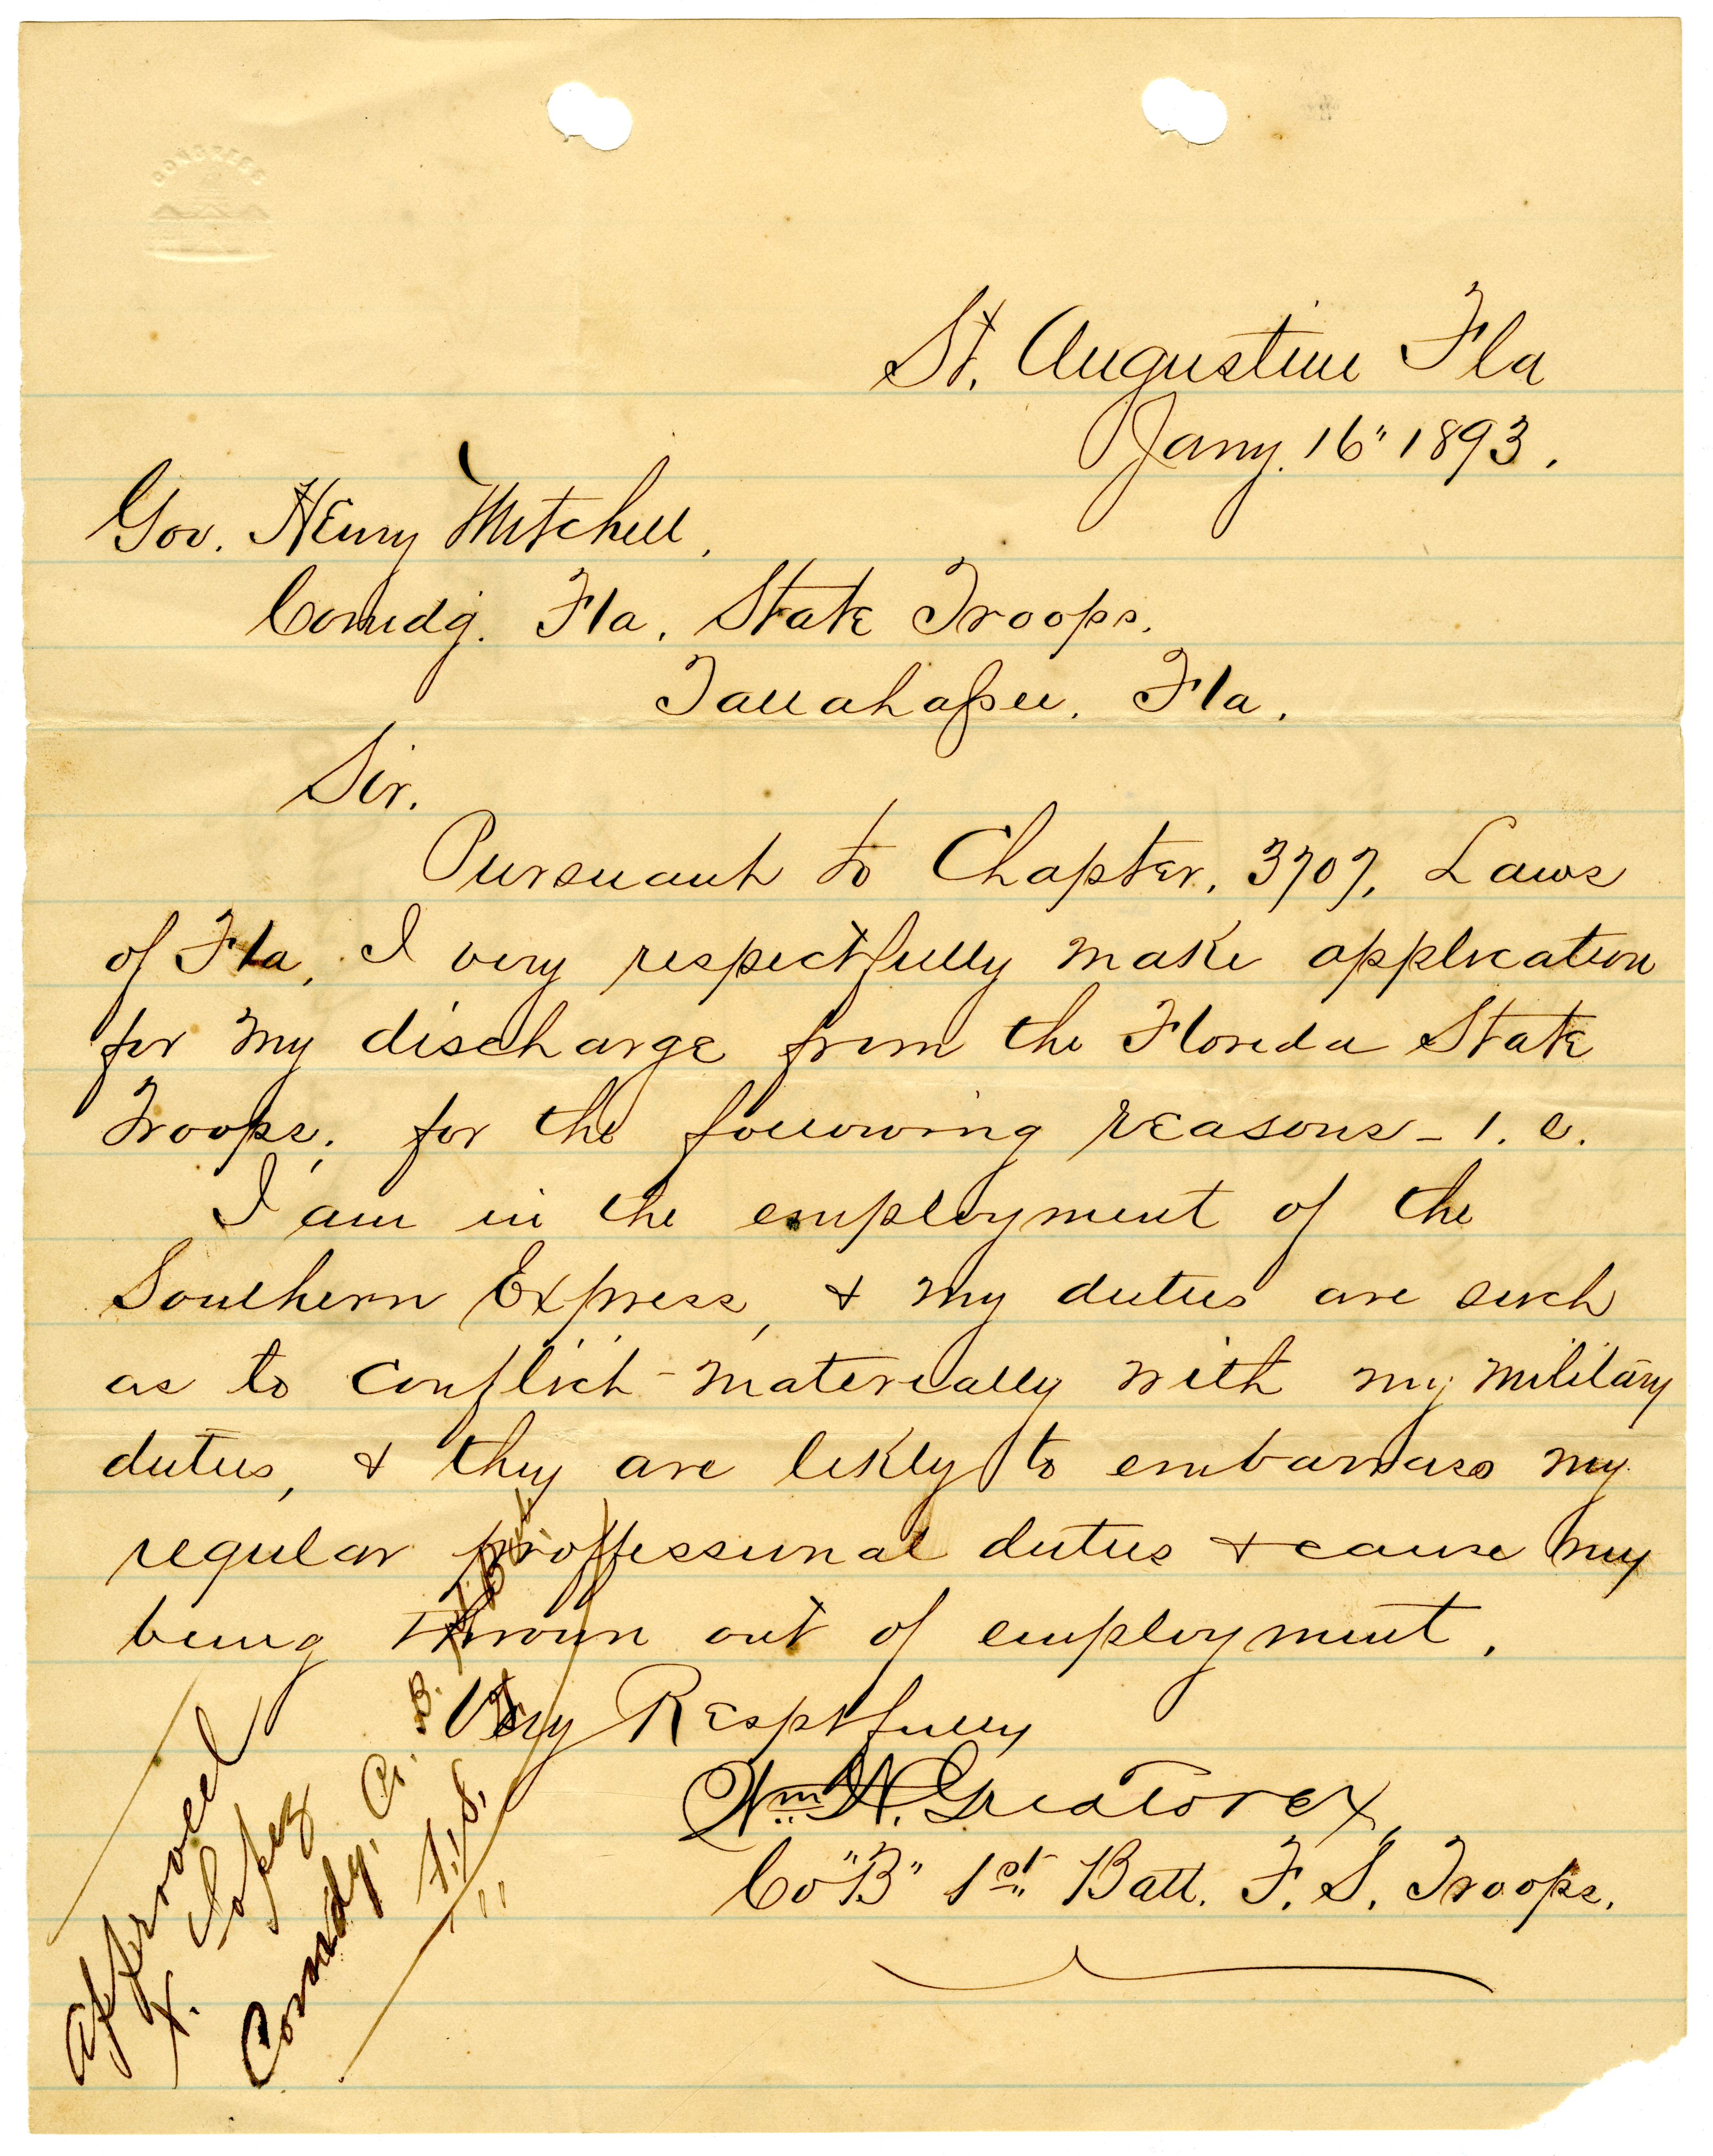 St. Augustine Fla
Jany. 16" 1893.
Gov. Henry Mitchell,
Comdg. Fla. State Troops.
Tallahassee. Fla.
Sir.
Pursuant to Chapter. 3707, Laws
of Fla, I very respectfully make application
for my discharge from the Florida State
Troops; for the following reasons - i.e.
I am in the employment of the
Southern Express, & my duties are such
as to conflict materially with my military
duties, & they are likly to embarrass my
regular proffessional duties & cause my
being thrown out of employment.
Very Resptfully
Wm H. Greatorex,
Co "B" 1st Batt. F. S. Troops.
Approved
X. Lopez
Comdg. Co. B. 1st Batt
F.S.